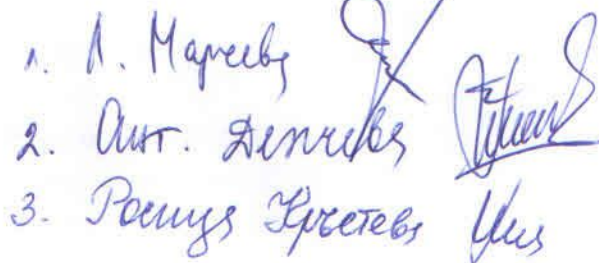 1. Л. Марчева
2. Ант. Денчева
3. Росица Кръстева